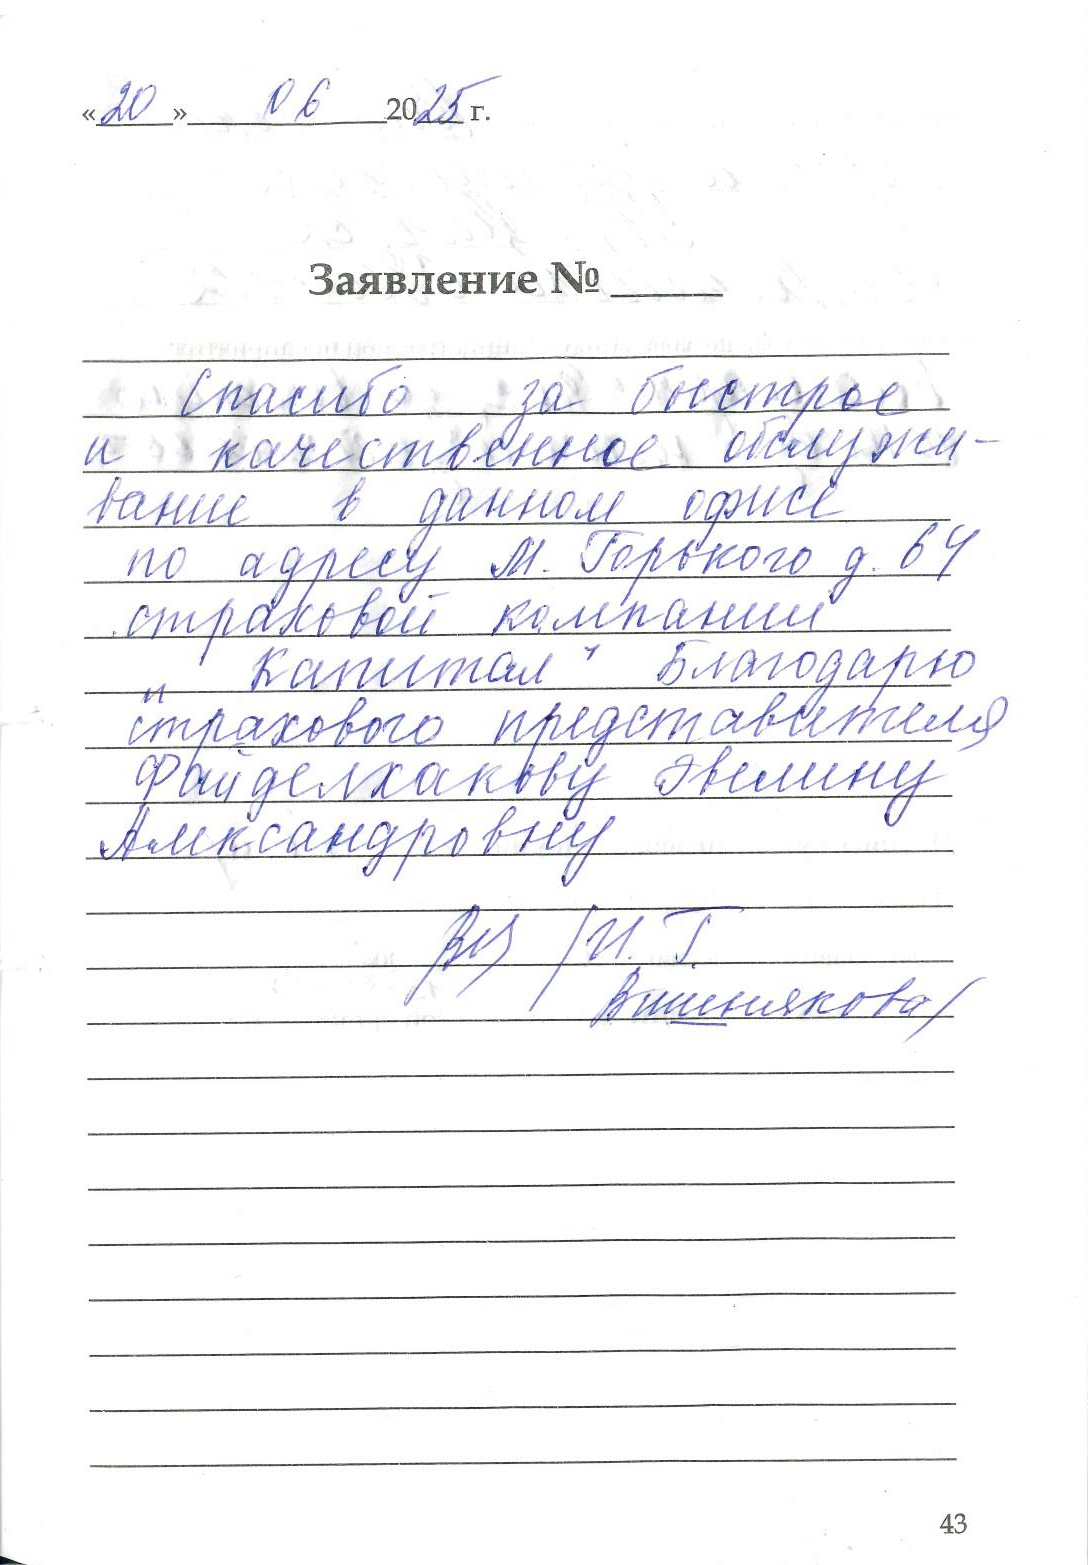 «20» 06 2025 г.
Заявление № _____
Спасибо за быстрое
и качественное обслужи-
вание в данном офисе
по адресу М. Горького д. 64
страховой компании
"Капитал" Благодарю
страхового представителя
Файделхакову Эвелину
Александровну
/И. Г.
Вишнякова/
43